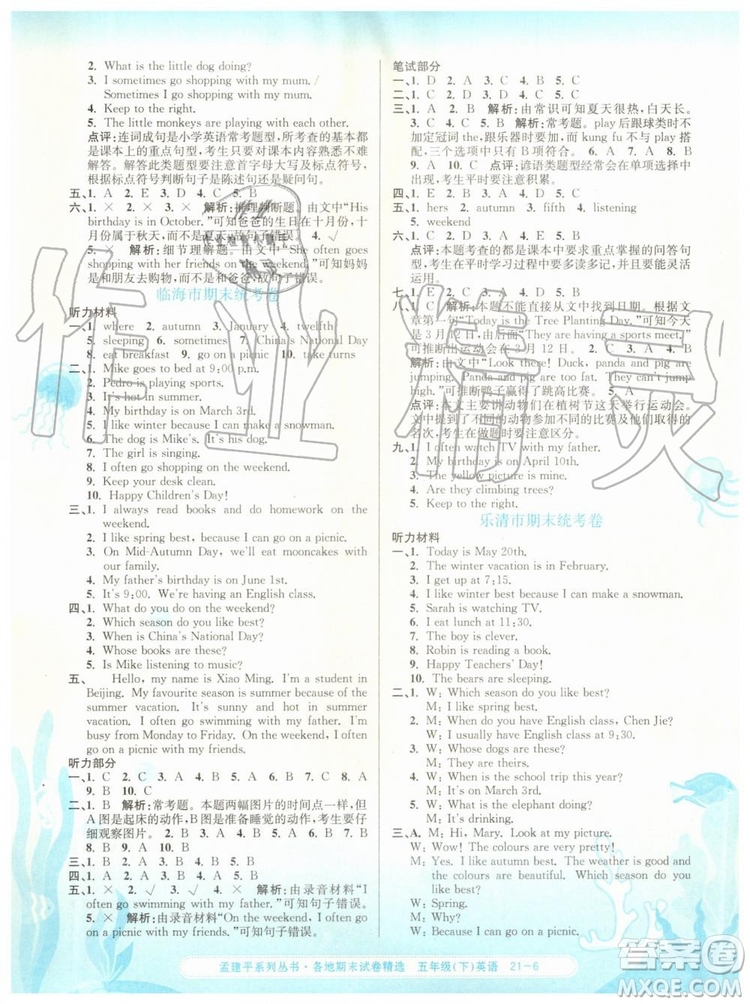 2. What is the little dog doing?
3. I sometimes go shopping with my mum. /
Sometimes I go shopping with my mum.
4. Keep to the right.
5. The little monkeys are playing with each other.
点评:连词成句是小学英语常考题型,所考查的基本都
是课本上的重点句型,考生只要对课本内容熟悉不难
解答。解答此类题型要注意首字母大写及标点符号,
根据标点符号判断句子是陈述句还是疑问句。
五、1. A 2. E 3. D 4. C 5. B
六、1. × 2. × 3. × 解析:推理判断题。由文中“His
birthday is in October.”可知爸爸的生日在十月份,十
月份属于秋天,而不是夏天,故句子错误。 4. √
5. × 解析:细节理解题。由文中“She often goes
shopping with her friends on the weekend.”可知妈妈
是和朋友去购物,而不是和爸爸,故句子错误。
临海市期末统考卷
听力材料
一、1. where 2. autumn 3. January 4. twelfth
5. sleeping 6. sometimes 7. China's National Day
8. eat breakfast 9. go on a picnic 10. take turns
二、1. Mike goes to bed at 9:00 p.m.
2. Pedro is playing sports.
3. It's hot in summer.
4. My birthday is on March 3rd.
5. I like winter because I can make a snowman.
6. The dog is Mike's. It's his dog.
7. The girl is singing.
8. I often go shopping on the weekend.
9. Keep your desk clean.
10. Happy Children's Day!
三、1. I always read books and do homework on the
weekend.
2. I like spring best, because I can go on a picnic.
3. On Mid-Autumn Day, we eat mooncakes with
our family.
4. My father's birthday is on June 1st.
5. It's 9:00. We are having an English class.
四、1. What do you do on the weekend?
2. Which season do you like best?
3. When is China's National Day?
4. Whose books are these?
5. Is Mike listening to music?
五、 Hello, my name is Xiao Ming. I am a student in
Beijing. My favourite season is summer because of the
summer vacation. It's sunny and hot in summer
vacation. I often go swimming with my father. I'm
busy from Monday to Friday. On the weekend, I often
go on a picnic with my friends.
听力部分
一、1. C 2. C 3. A 4. B 5. A 6. C 7. C 8. A
9. B 10. C
二、1. B 解析:常考题。本题两幅图片的时间点一样,但
A图是起床的动作,B图是准备睡觉的动作,考生要仔
细观察图片。 2. B 3. A 4. B 5. A 6. A 7. B
8. B 9. A 10. B
三、1. B 2. C 3. A 4. B 5. B
四、1. A 2. A 3. C 4. B 5. A
五、1. × 2. √ 3. √ 4. × 解析:由录音材料“I
often go swimming with my father.”可知句子错误。
5. × 解析:由录音材料“On the weekend, I often
go on a picnic with my friends.”可知句子错误。
笔试部分
一、1. D 2. A 3. C 4. B 5. C
二、1. C 2. A 3. D 4. E 5. B
三、1. A 2. B 3. B 解析:由常识可知夏天很热,白天
长。 4. C 5. C 解析:常考题。play后跟球类时不
加定冠词the,跟乐器时要加the,而且kung fu与play
搭配,考生要多注意这些区别。 6. B 7. B 8. B
9. A 10. C 点评:谚语类题型经常会在单项选择中出
现,考生平时要注意积累。
四、1. D 2. A 3. E 4. C 5. B
五、1. hers 2. autumn 3. fifth 4. listening
5. weekend
六、1. C 2. D 3. A 4. E 5. B
点评:本题考查的都是课本中要重点掌握的问答句
型,考生平时在学习的过程中要多读多记,并能灵活
运用。
七、1. C 2. D 3. E 4. A 5. B
八、1. C 解析:本题不能直接从文中找到答案,根据文
章第一句“Today is the Tree Planting Day.”可知今天
是3月12日,又由“They are having a sports meet.”
可推断出运动会在3月12日。 2. C 3. A 4. C 5. B
解析:由文中“Look there! Duck, panda and pig are
jumping. Panda and pig are too fat. They can't jump far.”
可推断鸭子赢得了跳高比赛。
点评:本文主要讲述动物们在植树节这天举行运动
会,并介绍了不同的动物参加不同的比赛以及取得的
名次,考生在做题时要注意区分。
九、1. I often watch TV with my father.
2. My birthday is on April 10th.
3. The yellow picture is mine.
4. Elephants are climbing trees.
5. Keep to the right.
乐清市期末统考卷
听力材料
一、1. Today is May 20th.
2. The winter vacation is in February.
3. I get up at 7:15.
4. I like winter best because I can make a snowman.
5. Sarah is watching TV.
6. I eat lunch at 11:30.
7. The boy is clever.
8. Robin is reading a book.
9. Happy Teachers' Day!
10. The bears are sleeping.
二、1. W: Which season do you like best?
M: I like spring best.
2. M: When do you have English class, Chen Jie?
W: I usually have English class at 9:30.
3. W: Whose dogs are these?
M: They are mine.
4. M: When is the school trip this year?
W: It's in October.
5. M: What is the elephant doing?
W: It's drinking water.
三、A: M: Hi, Mary. Look at my picture.
W: Wow! The colours are very pretty!
M: Yes. I like autumn best. The weather is good and
the colours are beautiful. Which season do you
like best?
W: Spring.
M: Why?
W: Because I can go on a picnic.
孟建平系列丛书·各地期末试卷精选 五年级(下)英语 21-6
作业精灵
答案圈